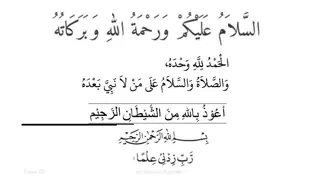 السَّلَامُ عَلَيْكُمْ وَرَحْمَةُ اللهِ وَبَرَكَاتُهُ
الْحَمْدُ لِلَّهِ وَحْدَهُ،
وَالصَّلَاةُ وَالسَّلَامُ عَلَى مَنْ لَا نَبِيَّ بَعْدَهُ
أَعُوْذُ بِاللهِ مِنَ الشَّيْطَانِ الرَّجِيْمِ
بِسْمِ اللهِ الرَّحْمٰنِ الرَّحِيْمِ
رَبِّ زِدْنِي عِلْمًا؛